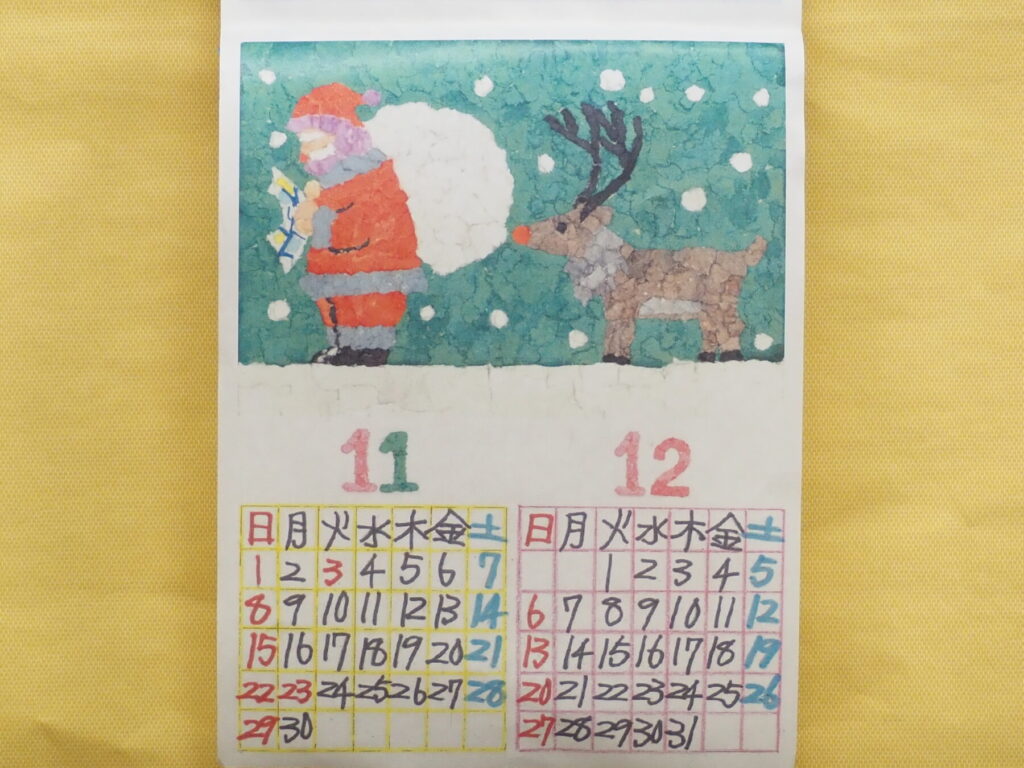 11
日 月 火 水 木 金 土
1 2 3 4 5 6 7
8 9 10 11 12 13 14
15 16 17 18 19 20 21
22 23 24 25 26 27 28
29 30
12
日 月 火 水 木 金 土
1 2 3 4 5
6 7 8 9 10 11 12
13 14 15 16 17 18 19
20 21 22 23 24 25 26
27 28 29 30 31